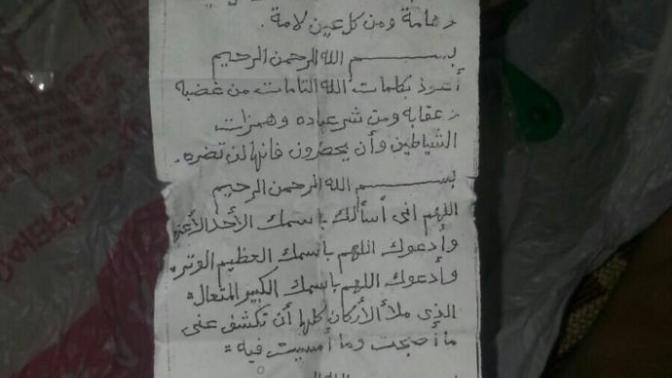 وهامة ومن كل عين لامة.
بسم الله الرحمن الرحيم
أعوذ بكلمات الله التامات من غضبه
وعقابه ومن شر عباده وهمزات
الشياطين وأن يحضرون فانها لن تضره.
بسم الله الرحمن الرحيم
اللهم انى أسألك باسمك الأحد الأعز
وأدعوك اللهم باسمك العظيم الوتر.
وأدعوك اللهم باسمك الكبير المتعال
الذى ملأ الأركان كلها أن تكشف عنى
ما أصبحت وما أمسيت فيه